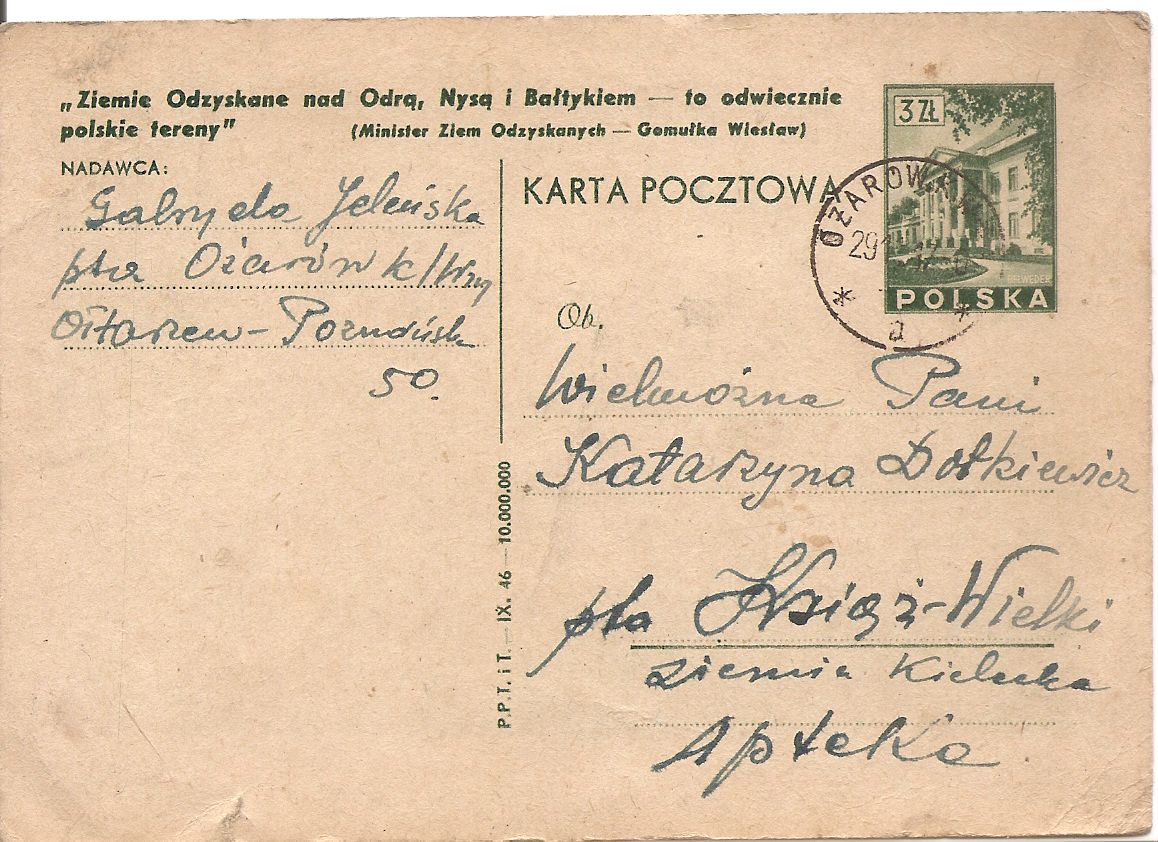 „Ziemie Odzyskane nad Odrą, Nysą i Bałtykiem — to odwiecznie
polskie tereny” (Minister Ziem Odzyskanych — Gomułka Wiesław)
NADAWCA:
Gabryela Jeleńska
pta Ożarów k/Wwy
Ołtarzew - Poznańska
50.
P.P.T. i T. — IX. 46 — 10.000.000
KARTA POCZTOWA
3 ZŁ
POLSKA
OŻARÓW
29
a
Ob.
Wielmożna Pani
Katarzyna Dołkiewicz
pta Książ-Wielki
ziemia Kielecka
Apteka